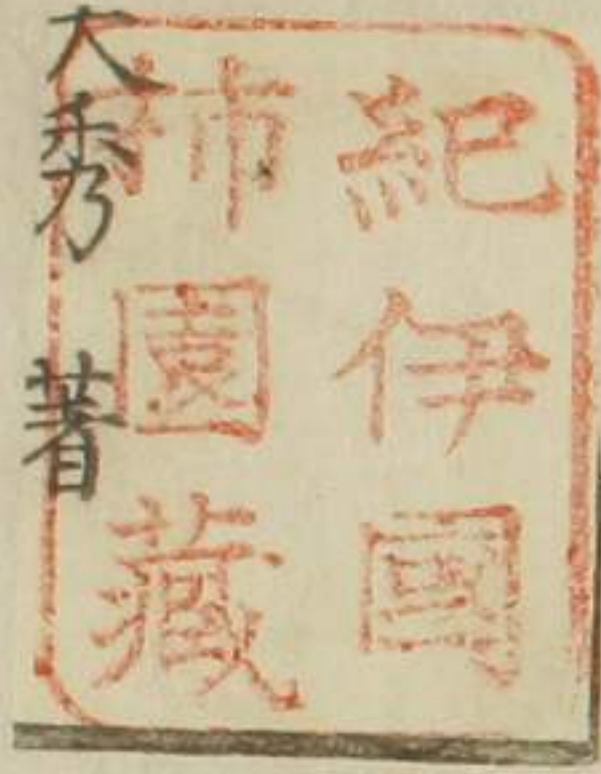 紀伊國
柿園藏
大秀 著